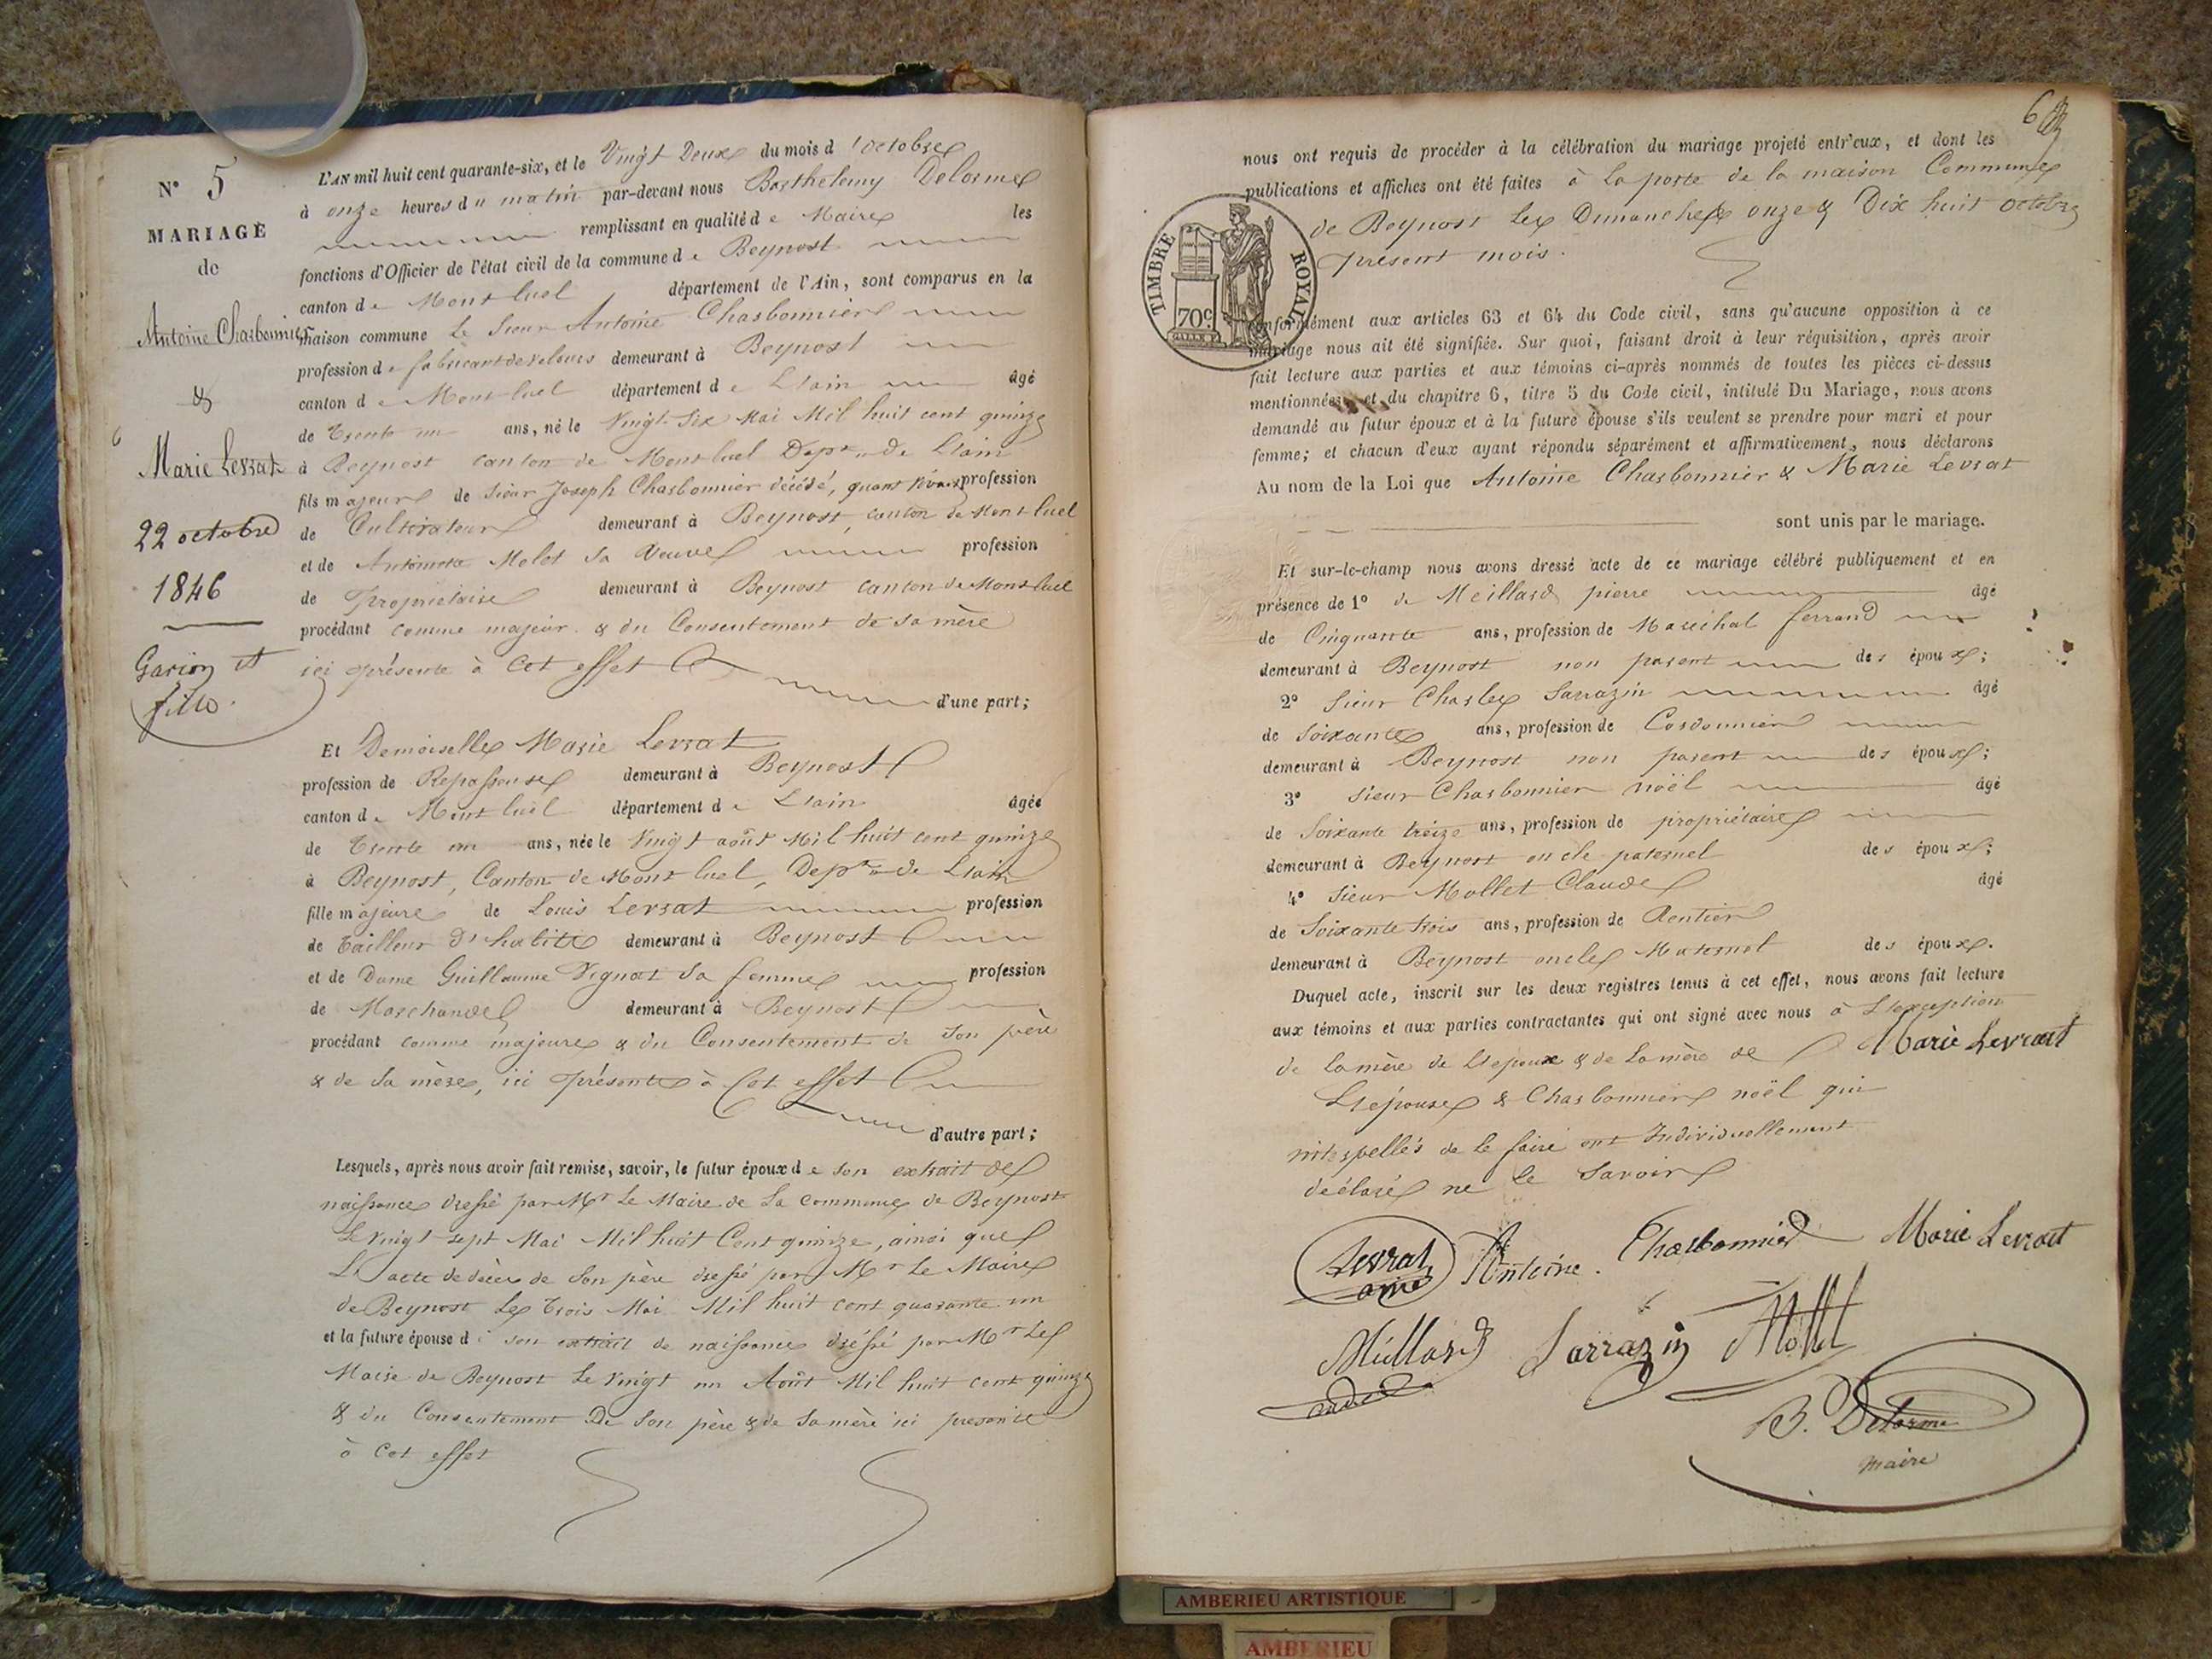 N° 5
MARIAGE
de
Antoine Charbonnier
&
Marie Levrat
22 octobre
1846
Garçon et
fille.
L'AN mil huit cent quarante-six, et le Vingt Deux du mois d'octobre
à onze heures du matin par-devant nous Barthelemy Delorme
remplissant en qualité de Maire les
fonctions d'Officier de l'état civil de la commune de Beynost
canton de Montluel département de l'Ain, sont comparus en la
maison commune Le Sieur Antoine Charbonnier
profession de fabricant de velours demeurant à Beynost
canton de Montluel département de L'ain âgé
de Trente un ans, né le Vingt-Six Mai Mil huit cent quinze
à Beynost canton de Montluel Dept. de L'ain
fils majeur de Sieur Joseph Charbonnier décédé, quant vivait profession
de Cultivateur demeurant à Beynost, canton de Montluel
et de Antoinette Molet sa Veuve profession
de Propriétaire demeurant à Beynost canton de Montluel
procédant comme majeur & du Consentement de sa mère
ici présente à Cet effet
d'une part;
Et Demoiselle Marie Levrat
profession de Repasseuse demeurant à Beynost
canton de Montluel département de L'ain âgée
de Trente un ans, née le Vingt août Mil huit cent quinze
à Beynost, Canton de Montluel, Dept. de L'ain
fille majeure de Louis Levrat profession
de Tailleur d'habits demeurant à Beynost
et de Dame Guillaume Vignat sa femme profession
de Marchande demeurant à Beynost
procédant comme majeure & du Consentement de Son père
& de Sa mère, ici Présents à Cet effet
d'autre part;
Lesquels, après nous avoir fait remise, savoir, le futur époux de son extrait de
naissance dressé par Mr Le Maire de La Commune de Beynost
Le vingt sept Mai Mil huit Cent quinze, ainsi que
L'acte de décès de Son père dressé par Mr Le Maire
de Beynost Le Trois Mai Mil huit cent quarante un
et la future épouse de son extrait de naissance dréssé par Mr Le
Maire de Beynost Le Vingt un Août Mil huit cent quinze
& du Consentement De Son père & de Sa mère ici presents
à Cet effet
6
nous ont requis de procéder à la célébration du mariage projeté entr'eux, et dont les
publications et affiches ont été faites à La porte de la maison Commune
de Beynost Les Dimanches onze & Dix huit octobre
présent mois.
TIMBRE ROYAL
70c
conformément aux articles 63 et 64 du Code civil, sans qu'aucune opposition à ce
mariage nous ait été signifiée. Sur quoi, faisant droit à leur réquisition, après avoir
fait lecture aux parties et aux témoins ci-après nommés de toutes les pièces ci-dessus
mentionnées et du chapitre 6, titre 5 du Code civil, intitulé Du Mariage, nous avons
demandé au futur époux et à la future épouse s'ils veulent se prendre pour mari et pour
femme; et chacun d'eux ayant répondu séparément et affirmativement, nous déclarons
Au nom de la Loi que Antoine Charbonnier & Marie Levrat
sont unis par le mariage.
Et sur-le-champ nous avons dressé acte de ce mariage célébré publiquement et en
présence de 1° de Meillard pierre âgé
de Cinquante ans, profession de Maréchal ferrand
demeurant à Beynost non parent des époux;
2° Sieur Charles Sarrazin âgé
de Soixante ans, profession de Cordonnier
demeurant à Beynost non parent des époux;
3° Sieur Charbonnier noël âgé
de Soixante treize ans, profession de propriétaire
demeurant à Beynost oncle paternel des époux;
4° Sieur Mollet Claude âgé
de Soixante trois ans, profession de Rentier
demeurant à Beynost oncle Maternel des époux.
Duquel acte, inscrit sur les deux registres tenus à cet effet, nous avons fait lecture
aux témoins et aux parties contractantes qui ont signé avec nous à L'exception
de La mère de L'époux & de La mère de Marie Levrat
L'épouse & Charbonnier noël qui
interpellés de le faire ont Individuellement
déclaré ne le Savoir
Levrat Antoine Charbonnier Marie Levrat
ainé
Meillard Sarrazin Mollet
B. Delorme
maire
AMBERIEU ARTISTIQUE
AMBERIEU